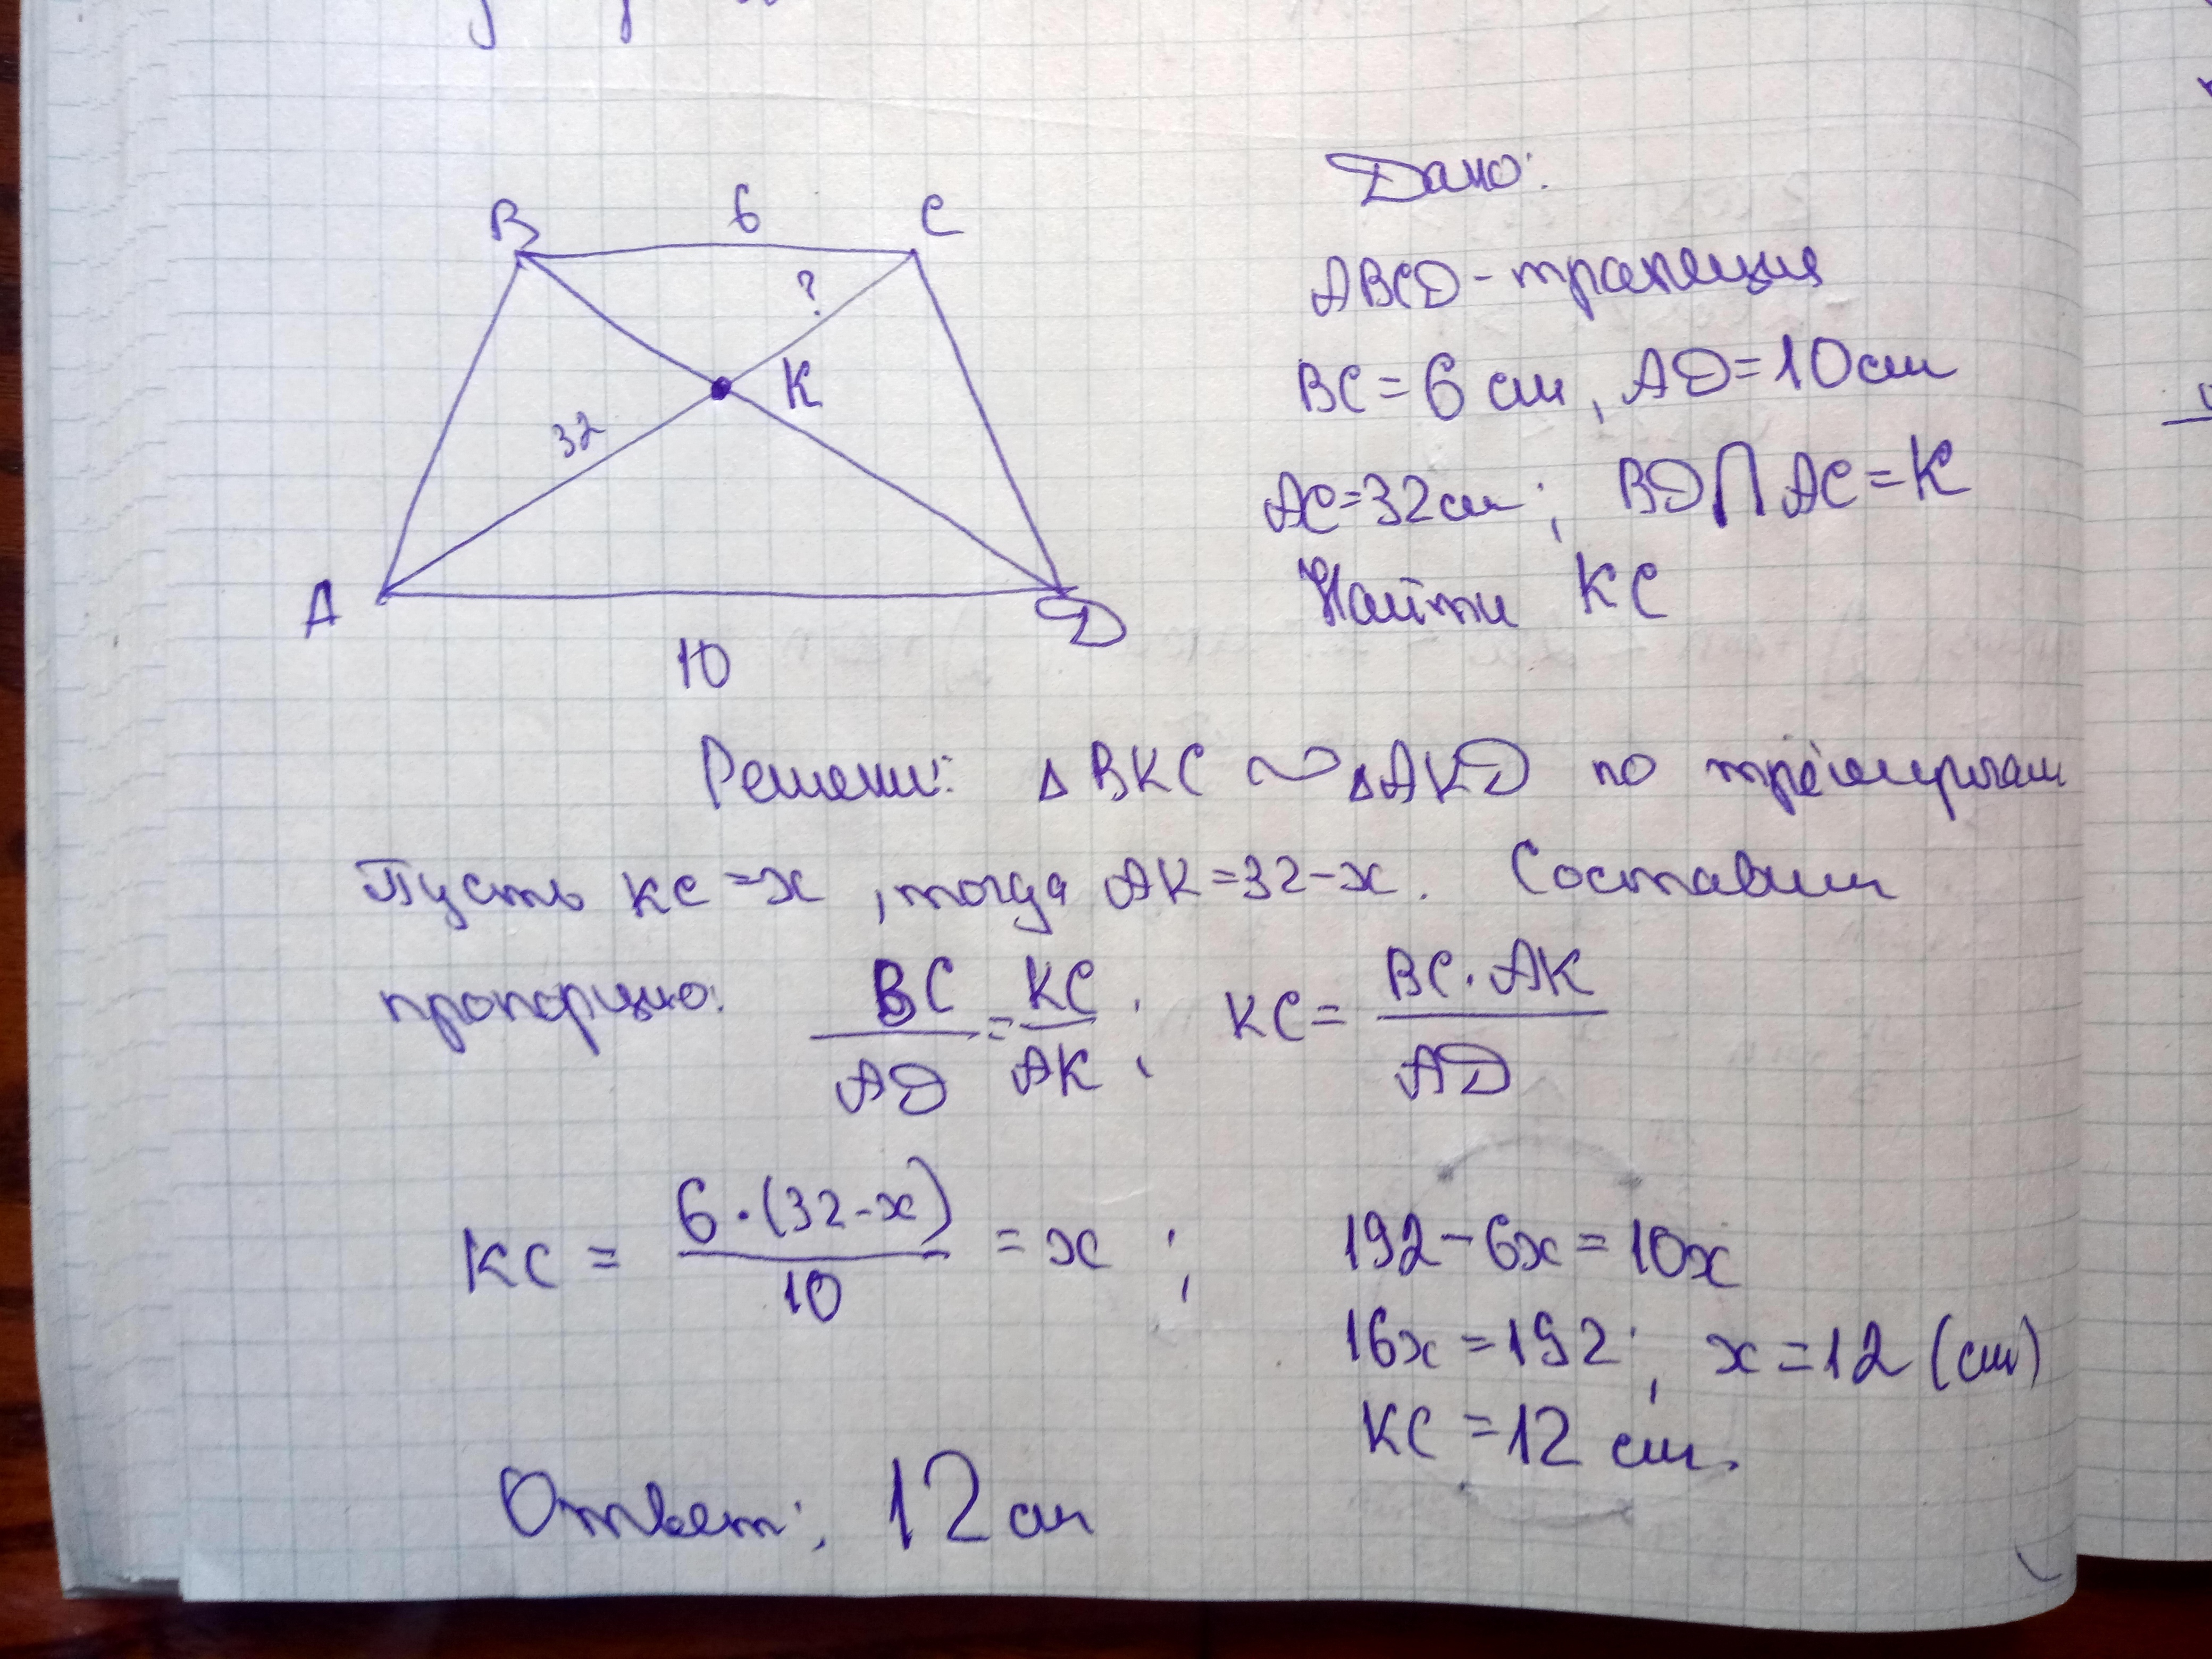 B 6 C
?
K
32
A D
10
Дано:
ABCD - трапеция
BC = 6 см, AD = 10 см
AC = 32 см; BD ∩ AC = K
Найти KC
Решени: Δ BKC ∾ Δ AKD по трём углам
Пусть KC = x, тогда AK = 32 - x. Составим
пропорцию: BC/AD = KC/AK; KC = BC · AK/AD
KC = 6 · (32 - x)/10 = x;
192 - 6x = 10x
16x = 192; x = 12 (см)
KC = 12 см.
Ответ: 12 см